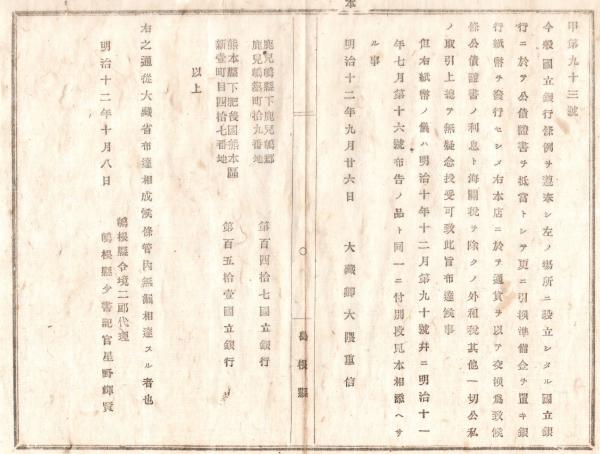 甲第九十三號
今般國立銀行條例ヲ遵奉シ左ノ塲所ニ設立シタル國立銀
行ニ於テ公債證書ヲ抵當トシテ更ニ引換準備金ヲ置キ銀
行紙幣ヲ發行セシメ右本店ニ於テ通貨ヲ以テ交換爲致候
條公債證書ノ利息ト海關稅ヲ除クノ外租稅其他一切公私
ノ取引上總テ無疑念授受可致此旨布達候事
但右紙幣ノ儀ハ明治十年十二月第九十號幷ニ明治十一
年七月第十六號布告ノ品ト同一ニ付別段見本相添ヘサ
ル事
明治十二年九月廿六日 大藏卿大隈重信
島根縣
鹿兒嶋縣下鹿兒嶋郡
鹿兒嶋築町拾九番地 第百四拾七國立銀行
熊本縣下肥後國熊本區
新壹町目四拾七番地 第百五拾壹國立銀行
以上
右之通從大藏省布達相成候條管內無漏相達スル者也
明治十二年十月八日
嶋根縣令境二郎代理
嶋根縣少書記官星野輝賢